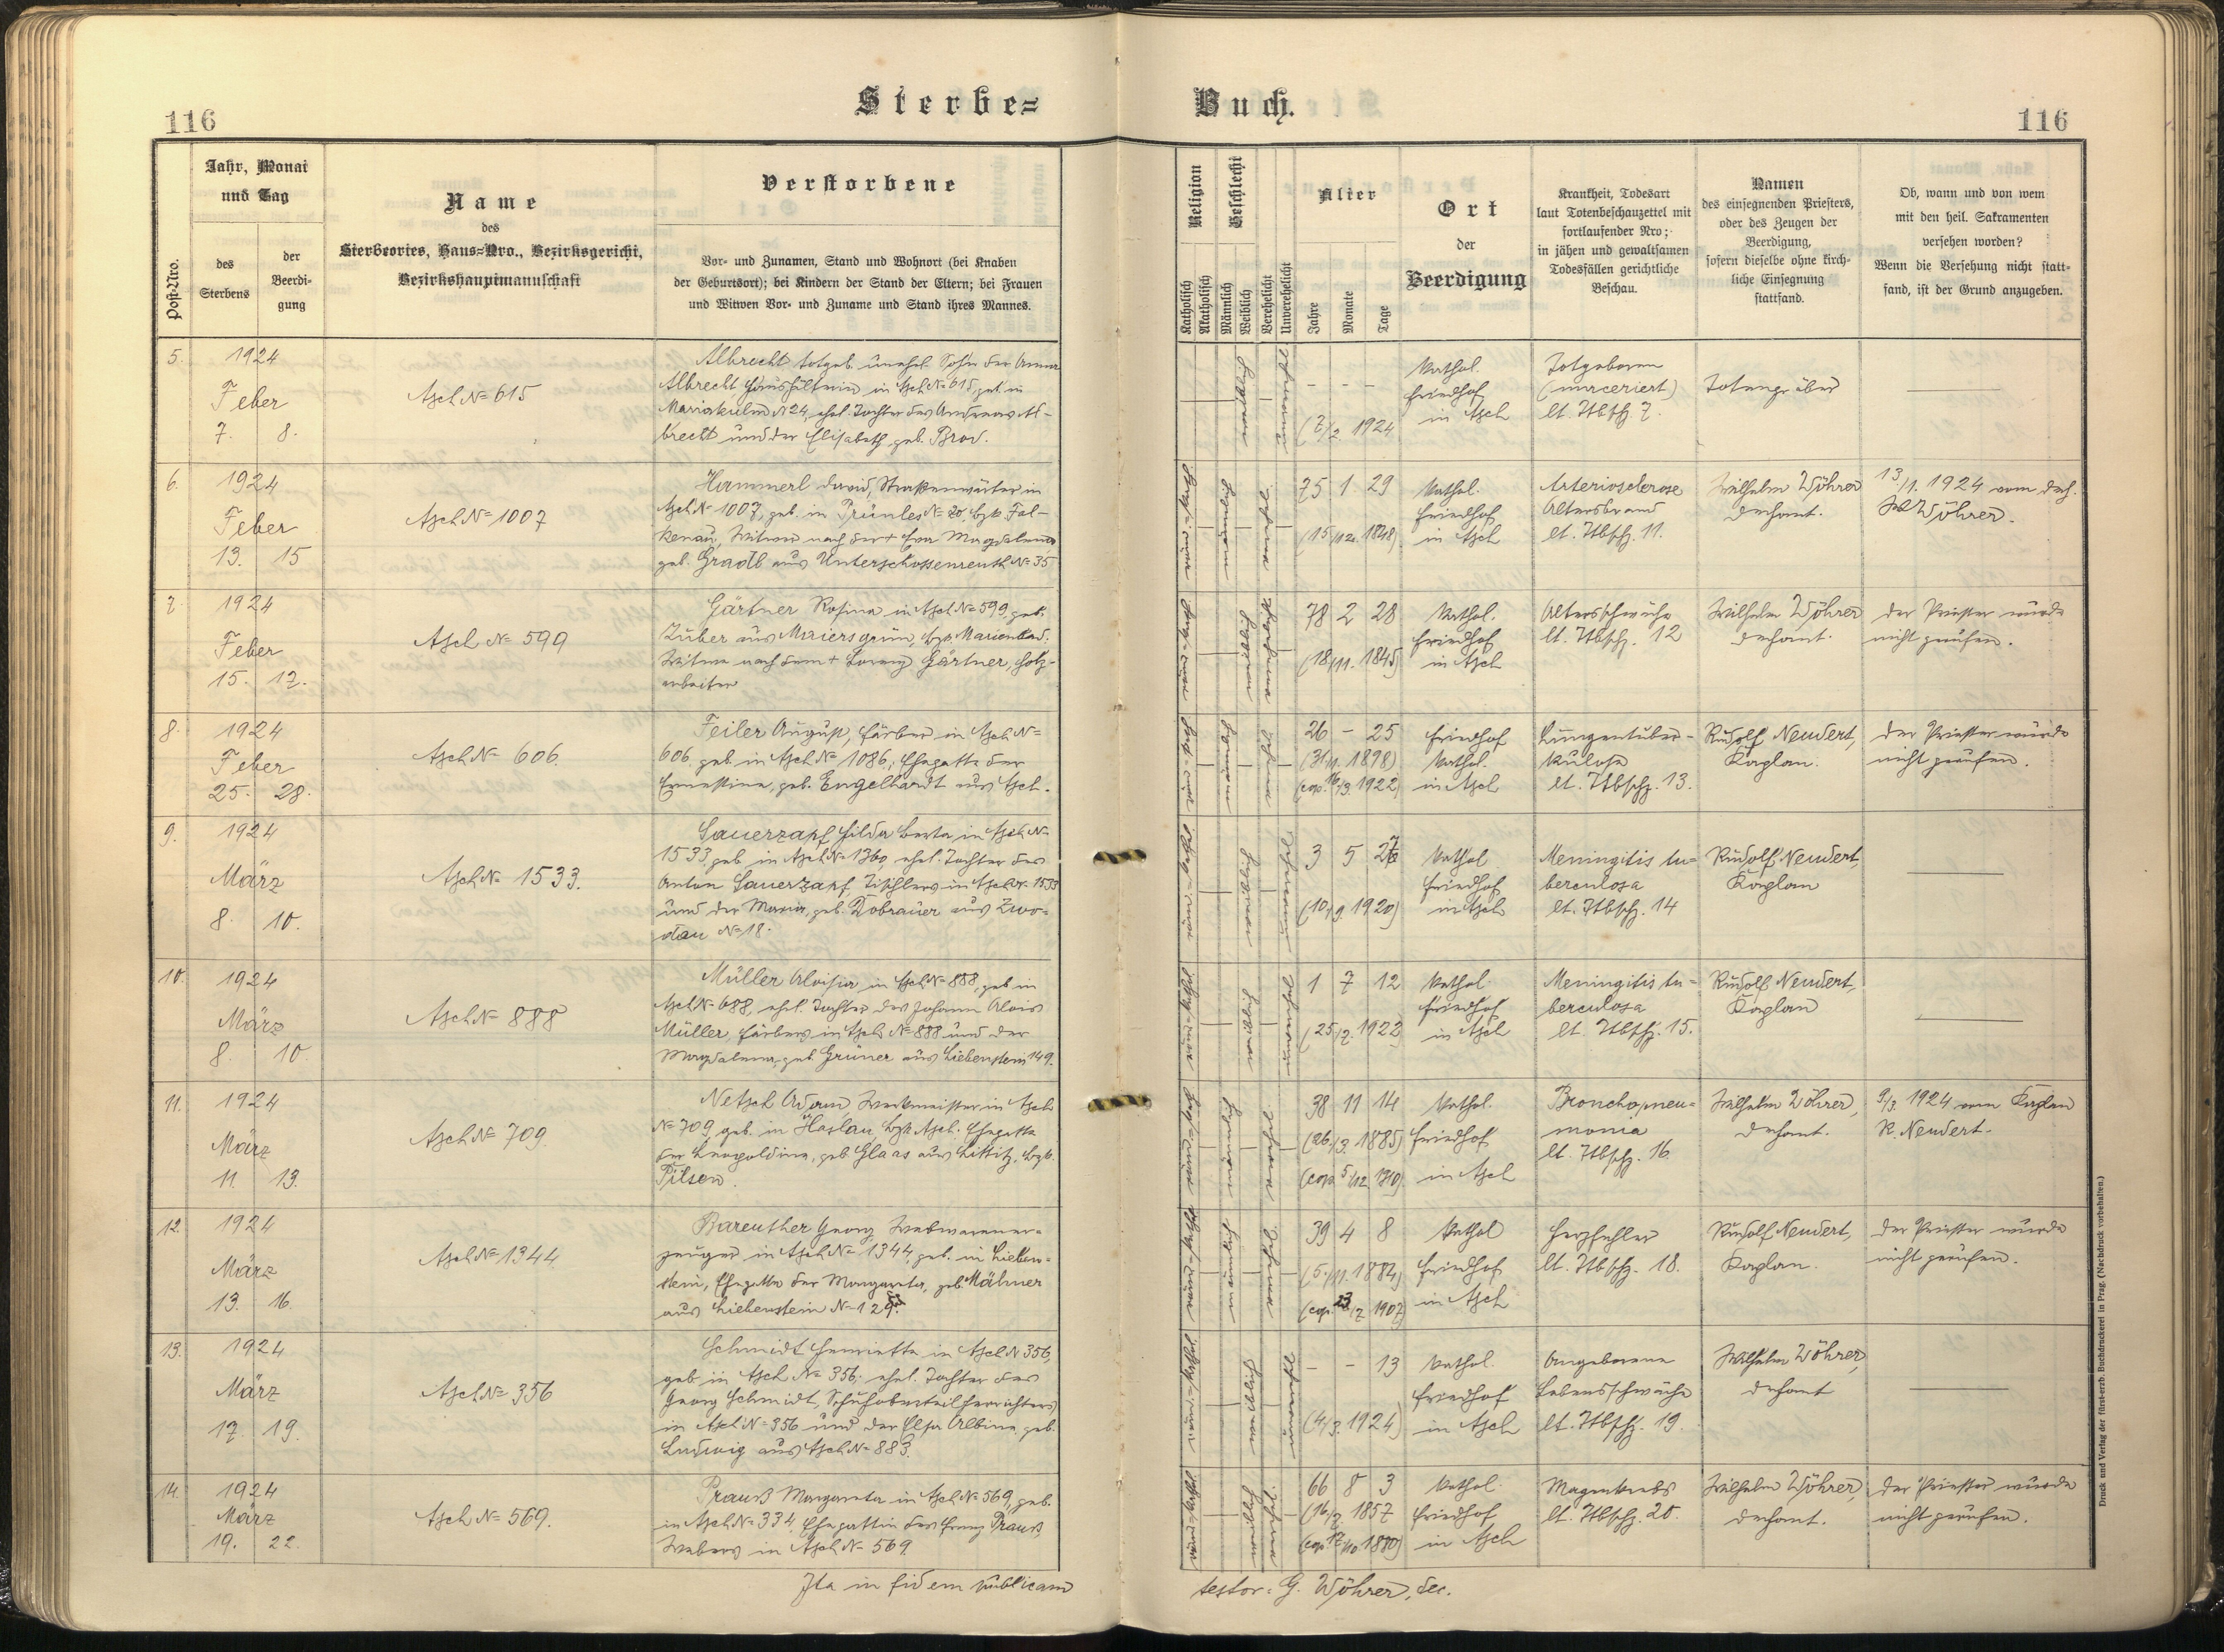 Sterbe=
Buch.
116
116
Post-Nro.
Jahr, Monat
und Tag
des
Sterbens
der
Beerdi-
gung
Name
des
Sterbeortes, Haus=Nro., Bezirksgericht,
Bezirkshauptmannschaft
Verstorbene
Vor- und Zunamen, Stand und Wohnort (bei Knaben
der Geburtsort); bei Kindern der Stand der Eltern; bei Frauen
und Witwen Vor- und Zuname und Stand ihres Mannes.
Religion
Katholisch
Akatholisch
Geschlecht
Männlich
Weiblich
Verehelicht
Unverehelicht
Alter
Jahre
Monate
Tage
Ort
der
Beerdigung
Krankheit, Todesart
laut Totenbeschauzettel mit
fortlaufender Nro;
in jähen und gewaltsamen
Todesfällen gerichtliche
Beschau.
Namen
des einsegnenden Priesters,
oder des Zeugen der
Beerdigung,
sofern dieselbe ohne kirch-
liche Einsegnung
stattfand.
Ob, wann und von wem
mit den heil. Sakramenten
versehen worden?
Wenn die Versehung nicht statt-
fand, ist der Grund anzugeben.
5.
1924
Feber
7. 8.
Asch N= 615
Albrecht totgeb. unehel. Sohn der Anna
Albrecht Haushälterin in Asch N= 615, geb. in
Mariakulm N 24, ehel. Tochter des Andreas Al-
brecht und der Elisabeth geb. Brod.
- - -
(7/2 1924
Kathol.
Friedhof
in Asch
Totgeboren
(marceriert)
lt. Ttbschz. 7.
Totengräber
6.
1924
Feber
13. 15
Asch N= 1007
Hammerl David, Straßenwärter in
Asch N= 1007, geb. in Prünles N= 20, bzk. Fal-
kenau, Witwer nach der + Eva Magdalena
geb. Gradl aus Unterschossenreuth N= 35
75 1 29
(15/12. 1848)
Kathol.
Friedhof
in Asch
Arteriosclerose
Altersbrand
lt. Ttbschz. 11.
Wilhelm Wöhrer
Dechant.
13/1. 1924 vom Dech.
W Wöhrer.
7.
1924
Feber
15. 17.
Asch N= 599
Gärtner Rosina in Asch N= 599, geb.
Zuber aus Maiersgrün, bzk. Marienbad.
Witwe nach dem + Lorenz Gärtner, Holz-
arbeiter
78 2 28
(18/11. 1845)
Kathol.
Friedhof
in Asch
Altersschwäche
lt. Ttbschz. 12
Wilhelm Wöhrer
Dechant.
Der Priester wurde
nicht gerufen.
8.
1924
Feber
25. 28.
Asch N= 606.
Feiler August, Färber in Asch N=
606 geb. in Asch N= 1086; Ehegatte der
Ernestine, geb. Engelhardt aus Asch.
26 - 25
(31/1. 1898)
(cop. 16/9. 1922)
Friedhof
Kathol.
in Asch
Lungentuber-
kulose
lt. Ttbschz. 13.
Rudolf Neudert,
Kaplan.
Der Priester wurde
nicht gerufen.
9.
1924
März
8. 10.
Asch N= 1533.
Sauerzapf Hilda Berta in Asch N=
1533, geb in Asch N= 1360 ehel. Tochter des
Anton Sauerzapf, Tischlers in Asch N= 1533
und der Maria, geb. Dobrauer aus Zwo-
dau N= 18.
3 5 27
(10/9. 1920)
Kathol
Friedhof
in Asch
Meningitis tu=
berculosa
lt. Ttbschz. 14
Rudolf Neudert,
Kaplan
10.
1924
März
8. 10.
Asch N= 888
Müller Aloisia in Asch N= 888, geb in
Asch N= 688, ehel. Tochter des Johann Alois
Müller, Färbers in Asch N= 888 und der
Magdalena, geb. Grüner aus Liebenstein 149.
1 7 12
(25/7. 1922)
Kathol.
Friedhof
in Asch
Meningitis tu=
berculosa
lt. Ttbschz. 15.
Rudolf Neudert,
Kaplan
11.
1924
März
11. 13.
Asch N= 709
Netsch Adam, Werkmeister in Asch
N= 709, geb. in Haslau, bzk Asch. Ehegatte
der Leopoldine, geb Glaas aus Littitz, bzk.
Pilsen.
38 11 14
(26./3. 1885)
(cop. 5/12. 1910)
Kathol.
Friedhof
in Asch
Bronchopneu=
monia
lt. Ttbschz. 16.
Wilhelm Wöhrer,
Dechant.
9/3. 1924 vom Kaplan
R. Neudert.
12.
1924
März
13. 16.
Asch N= 1344
Bareuther Georg, Webwarener=
zeuger in Asch N= 1344, geb. in Lieben=
stein, Ehegatte der Margareta, geb. Mähner
aus Liebenstein N= 129.
39 4 8
(5./11. 1884)
(cop. 23/7 1907)
Kathol
Friedhof
in Asch
Herzfehler
lt. Ttbschz. 18.
Rudolf Neudert,
Kaplan.
Der Priester wurde
nicht gerufen.
13.
1924
März
17. 19.
Asch N= 356
Schmidt Henrietta in Asch N 356,
geb. in Asch N= 356; ehel. Tochter des
Georg Schmidt, Schuhoberteilherrichters
in Asch N= 356 und der Elsa Albine, geb.
Ludwig aus Asch N= 883.
- - 13
(4/3. 1924)
Kathol.
Friedhof
in Asch
Angeborene
Lebensschwäche
lt. Ttbschz. 19.
Wilhelm Wöhrer,
Dechant
14.
1924
März
19. 22.
Asch N= 569.
Prauß Margareta in Asch N= 569, geb.
in Asch N= 334 Ehegattin des Franz Prauß,
Webers in Asch N= 569.
66 8 3
(16/7. 1857
(cop 17/10 1880)
Kathol.
Friedhof
in Asch
Magenkrebs
lt. Ttbschz. 20.
Wilhelm Wöhrer,
Dechant.
Der Priester wurde
nicht gerufen.
Ita in fidem publicam
testor: G. Wöhrer, dec.
Druck und Verlag der fürst-erzb. Buchdruckerei in Prag. (Nachdruck vorbehalten.)